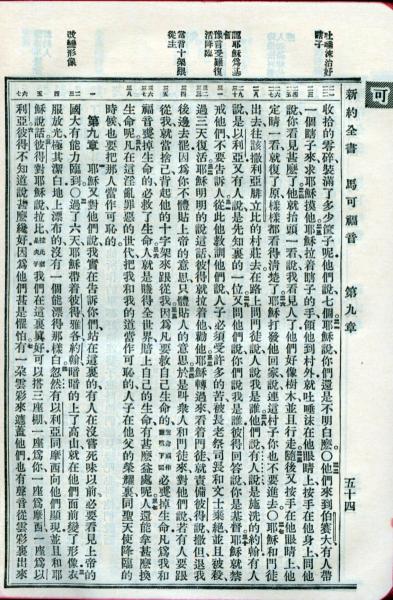 可
新約全書 馬可福音 第九章 五十四
吐唾沫治好
瞎子
認耶穌為基
督
豫言受難復
活降臨
當背十架跟
從主
改變形像
收拾的零碎裝滿了多少筐子呢他們說七個耶穌說你們還是不明白麼〇他們來到伯賽大有人帶
一個瞎子來求耶穌摸他耶穌拉着瞎子的手領他到村外就吐唾沫在他眼睛上按手在他身上問他
說你看見甚麼了他就抬頭一看說我看見人了他們好像樹木並且行走隨後又按手在他眼睛上他
定睛一看就復了原樣樣都看得清楚了耶穌打發他回家說連這村子你也不要進去〇耶穌和門徒
出去往該撒利亞腓立比的村莊去在路上問門徒說人說我是誰他們說有人說是施洗的約翰有人
說是以利亞又有人說是先知裏的一位又問他們說你們說我是誰彼得回答說你是基督耶穌就禁
戒他們不要告訴人從此他教訓他們說人子必須受許多的苦被長老祭司長和文士棄絕並且被殺
過三天復活耶穌明明的說這話彼得就拉着他勸他耶穌轉過來看着門徒就責備彼得說撒但退我
後邊去罷因為你不體貼上帝的意思只體貼人的意思於是叫眾人和門徒來對他們說若有人要跟
從我就當捨己背起他的十字架來跟從我因為凡要救自己生命的必要喪掉生命凡為我和
福音喪掉生命的必救了生命人就是賺得全世界賠上自己的生命有甚麼益處呢人還能拿甚麼換
生命呢凡在這淫亂罪惡的世代把我和我的道當作可恥的人子在他父的榮耀裏同聖天使降臨的
時候也要把那人當作可恥的
第九章 耶穌又對他們說我實在告訴你們站在這裏的有人在沒嘗死味以前必要看見上帝的
國大有能力臨到〇過了六天耶穌帶着彼得雅各約翰暗暗的上了高山就在他們面前變了形像衣
服放光極其潔白地上漂布的沒有一個能漂得那樣白忽然有以利亞同摩西向他們顯現並且和耶
穌說話彼得對耶穌說拉比我們在這裏真好可以搭三座棚一座為你一座為摩西一座為以
利亞彼得不知道說甚麼纔好因為他們甚是懼怕有一朵雲彩來遮蓋他們也有聲音從雲彩裏出來